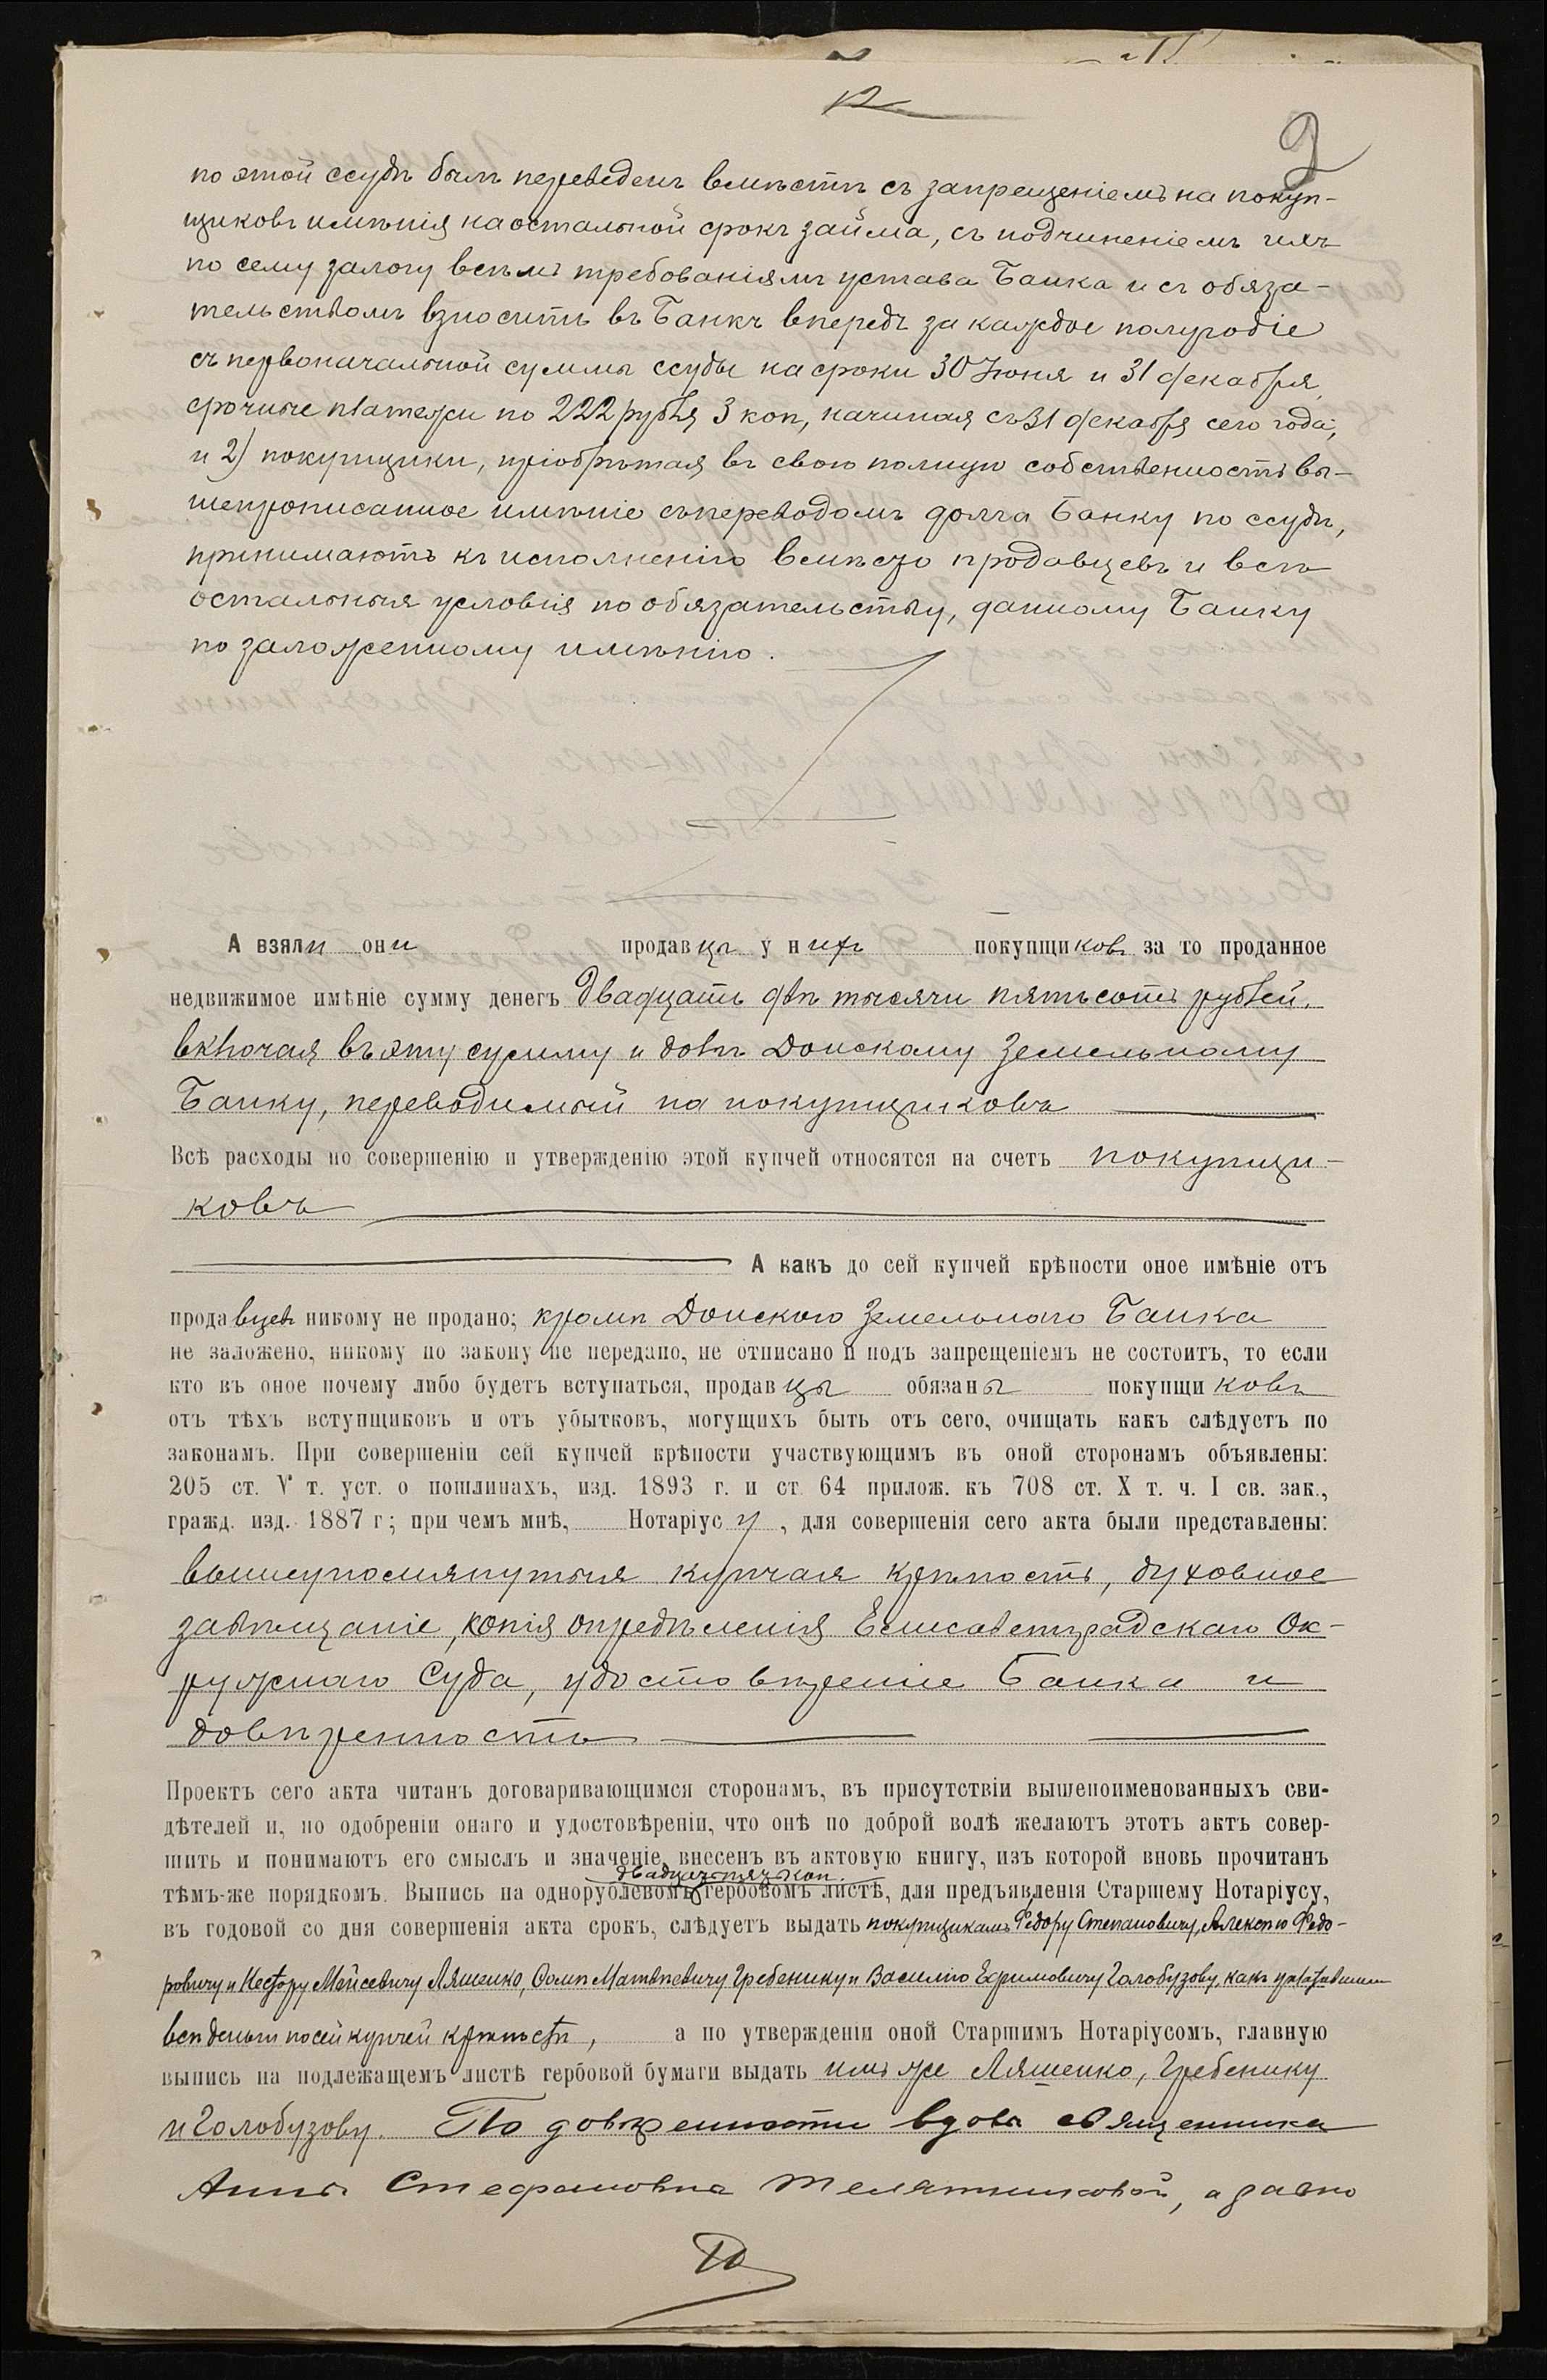 2
по этой ссудѣ былъ переведенъ вмѣстѣ съ запрещеніемъ на покуп-
щиковъ имѣнія на остальной срокъ займа, съ подчиненіемъ ихъ
по сему залогу всѣмъ требованіямъ устава Банка и съ обяза-
тельствомъ взносить въ Банкъ впередъ за каждое полугодіе
съ первоначальной суммы ссуды на сроки 30 Іюня и 31 декабря,
срочные платежи по 222 рубля 3 коп, начиная съ 31 декабря сего года,
и 2) покупщики, пріобрѣтая въ свою полную собственность вы-
шепрописанное имѣніе съ переводомъ долга Банку по ссудѣ,
принимаютъ къ исполненію вмѣсто продавцевъ и всѣ
остальныя условія по обязательству, данному Банку
по заложенному имѣнію.
А взяли они продавцы у нихъ покупщиковъ за то проданное
недвижимое имѣніе сумму денегъ двадцать двѣ тысячи пятьсотъ рублей,
включая въ эту сумму и долгъ Донскому Земельному
Банку, переводимый на покупщиковъ
Всѣ расходы по совершенію и утвержденію этой купчей относятся на счетъ покупщи-
ковъ
А какъ до сей купчей крѣпости оное имѣніе отъ
продавцевъ никому не продано; кромѣ Донского Земельнаго Банка
не заложено, никому по закону не передано, не отписано и подъ запрещеніемъ не состоитъ, то если
кто въ оное почему либо будетъ вступаться, продавцы обязаны покупщиковъ
отъ тѣхъ вступщиковъ и отъ убытковъ, могущихъ быть отъ сего, очищать какъ слѣдуетъ по
законамъ. При совершеніи сей купчей крѣпости участвующимъ въ оной сторонамъ объявлены:
205 ст. V т. уст. о пошлинахъ, изд. 1893 г. и ст. 64 прилож. къ 708 ст. X т. ч. I св. зак.,
гражд. изд. 1887 г; при чемъ мнѣ, Нотаріусу, для совершенія сего акта были представлены:
вышеупомянутыя купчая крѣпость, духовное
завѣщаніе, копія опредѣленія Елисаветградскаго Ок-
ружнаго Суда, удостовѣреніе Банка и
довѣренность
Проектъ сего акта читанъ договаривающимся сторонамъ, въ присутствіи вышепоименованныхъ сви-
дѣтелей и, по одобреніи онаго и удостовѣреніи, что онѣ по доброй волѣ желаютъ этотъ актъ совер-
шить и понимаютъ его смыслъ и значеніе, внесенъ въ актовую книгу, изъ которой вновь прочитанъ
двадцати коп.
тѣмъ-же порядкомъ. Выпись на однорублевомъ гербовомъ листѣ, для предъявленія Старшему Нотаріусу,
въ годовой со дня совершенія акта срокъ, слѣдуетъ выдать покупщикамъ Федору Степановичу, Алексѣю Федо-
ровичу и Нестору Мойсевичу Ляшенко, Фомѣ Матвѣевичу Гребенику и Василію Ефимовичу Голобузову, какъ уплатившимъ
всѣ деньги по сей купчей крѣпости, а по утвержденіи оной Старшимъ Нотаріусомъ, главную
выпись на подлежащемъ листѣ гербовой бумаги выдать имъ же Ляшенко, Гребенику
и Голобузову. По довѣренности вдова священника
Анна Стефановна Телятниковой, а равно